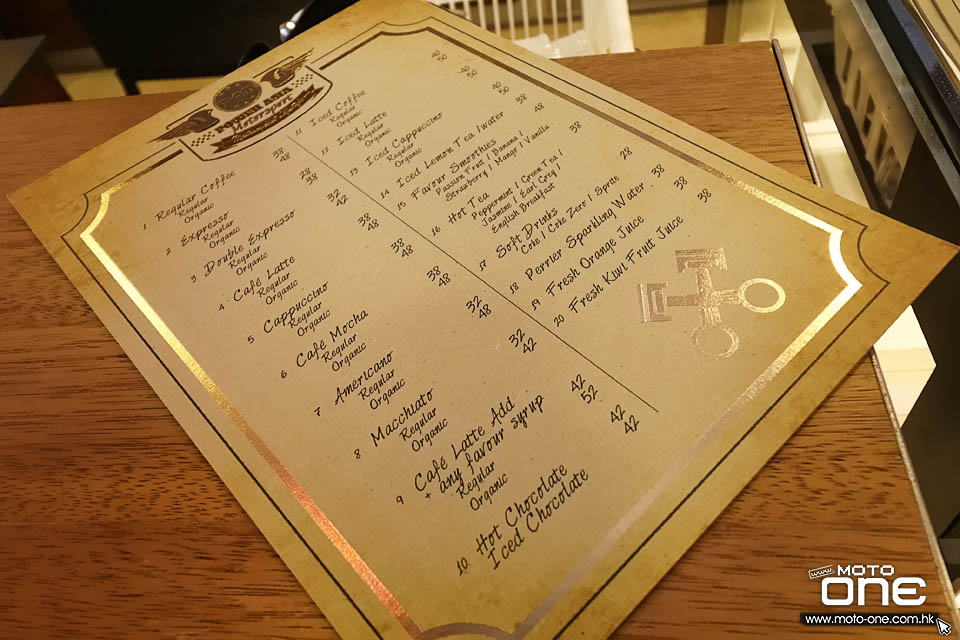 POWER ASIA
Motorsport
1 Regular Coffee
Regular 38
Organic 48
2 Expresso
Regular 28
Organic 38
3 Double Expresso
Regular 32
Organic 42
4 Café Latte
Regular 38
Organic 48
5 Cappuccino
Regular 38
Organic 48
6 Café Mocha
Regular 38
Organic 48
7 Americano
Regular 32
Organic 48
8 Macchiato
Regular 32
Organic 42
9 Café Latte Add
+ any favour syrup
Regular 42
Organic 52
10 Hot Chocolate 42
Iced Chocolate 42
11 Iced Coffee
Regular 40
Organic 50
12 Iced Latte
Regular 40
Organic 50
13 Iced Cappuccino
Regular 40
Organic 50
14 Iced Lemon Tea / water 38
15 Favour Smoothies 48
Passion Fruit / Banana /
Strawberry / Mango / Vanilla
16 Hot Tea 38
Peppermint / Green Tea /
Jasmine / Earl Grey /
English Breakfast
17 Soft Drinks 28
Coke / Coke Zero / Sprite
18 Perrier Sparkling Water 38
19 Fresh Orange Juice 38
20 Fresh Kiwi Fruit Juice 38
www.
MOTO
ONE
www.moto-one.com.hk